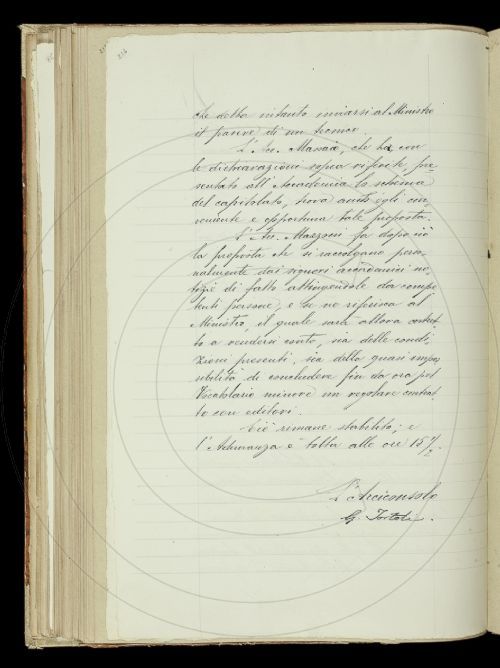 che debba intanto inviarsi al Ministro
il parere di un tecnico.
L'Ac. Massaia, che ha con
le dichiarazioni sopra riferite pre-
sentato all'Accademia lo schema
del capitolato, trova anch'egli con-
veniente e opportuna tale proposta.
L'Ac. Mazzoni fa dopo ciò
la proposta che si raccolgano perso-
nalmente dai signori accademici no-
tizie di fatto attingendole da compe-
tenti persone, e se ne riferisca al
Ministro, il quale sarà allora
to a rendersi conto, sia delle condi-
zioni presenti, sia della quasi impos
sibilità di concludere fin da ora pel
Vocabolario minore un regolare contrat
to con editori.
Ciò rimane stabilito; e
l'Adunanza è tolta alle ore 15 1/2.
L'Arciconsolo
G. Tortoli.